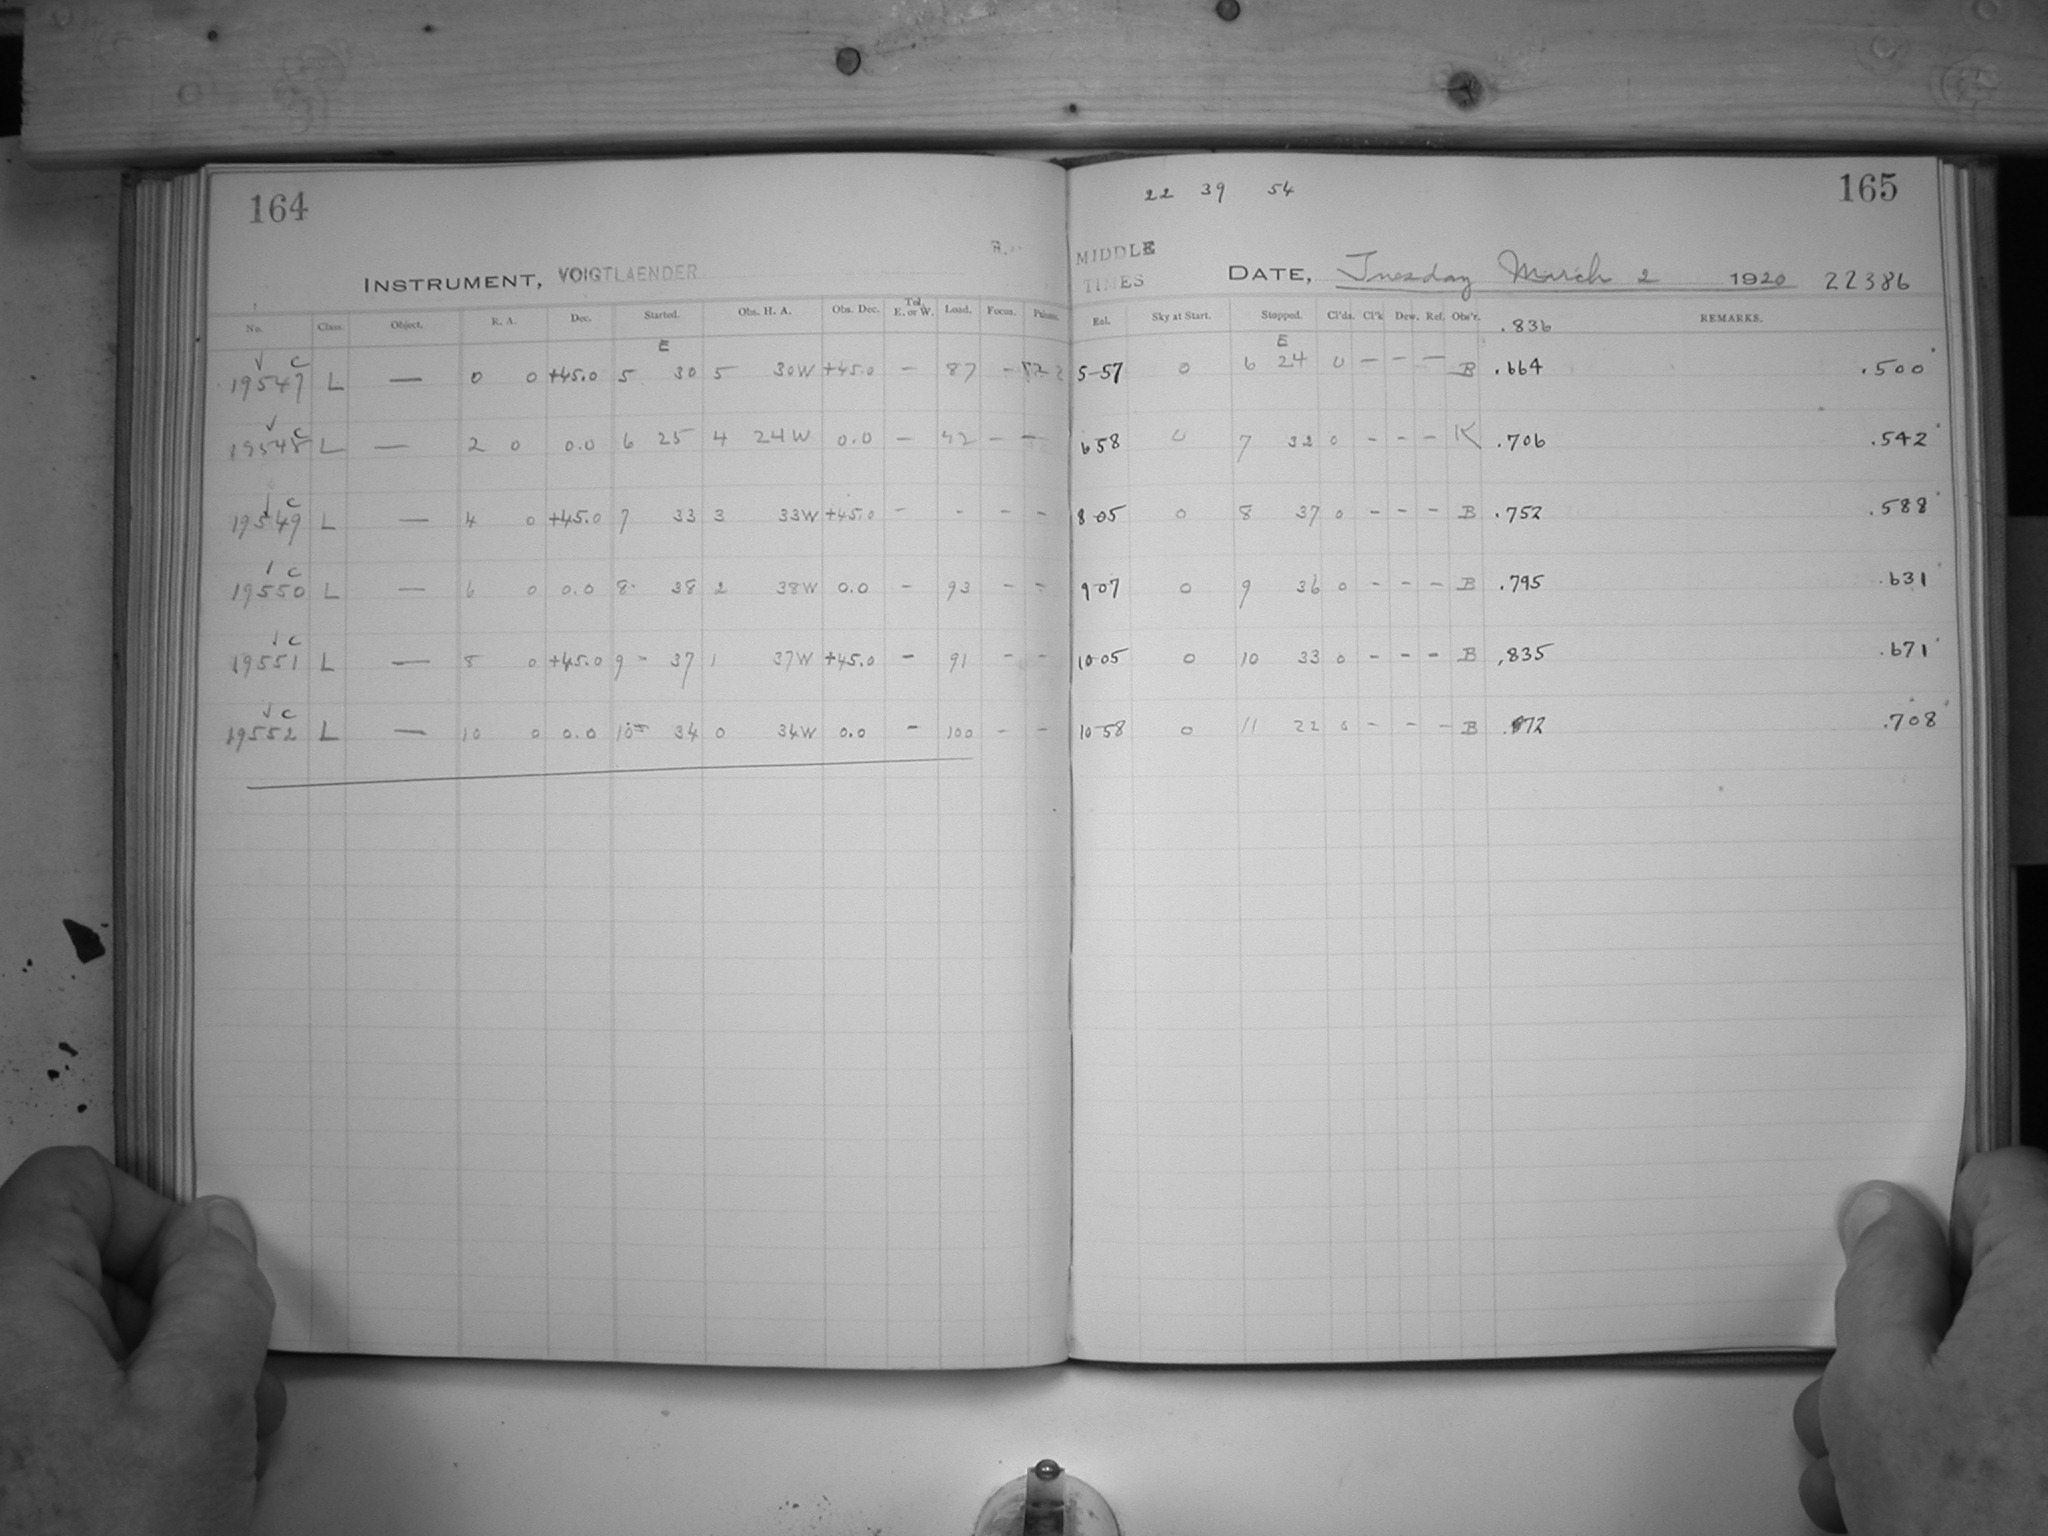 164
INSTRUMENT, VOIGTLAENDER
No. Class. Object. R. A. Dec. Started. Obs. H. A. Obs. Dec. Tel. E. or W. Load. Focus.
E
✓ C
19547 L — 0 0 +45.0 5 30 5 30W +45.0 — 87 -
✓ C
19548 L — 2 0 0.0 6 25 4 24W 0.0 — 42 - -
✓ C
19549 L — 4 0 +45.0 7 33 3 33W +45.0 - - - -
✓ C
19550 L — 6 0 0.0 8 38 2 38W 0.0 - 93 - -
✓ C
19551 L — 8 0 +45.0 9 37 1 37W +45.0 - 91 - -
✓ C
19552 L — 10 0 0.0 10 34 0 34W 0.0 - 100 - -
22 39 54
165
MIDDLE
TIMES
DATE, Tuesday March 2 1920 22386
Sky at Start. Stopped. Cl'ds. Cl'k Dew. Ref. Obs'r. .836 REMARKS.
E
5-57 0 6 24 0 — — — B .664 .500
6 58 0 7 32 0 - - - K .706 .542
8 05 0 8 37 0 - - - B .752 .588
9 07 0 9 36 0 - - - B .795 .631
10 05 0 10 33 0 - - - B .835 .671
10-58 0 11 22 0 - - - B .872 .708